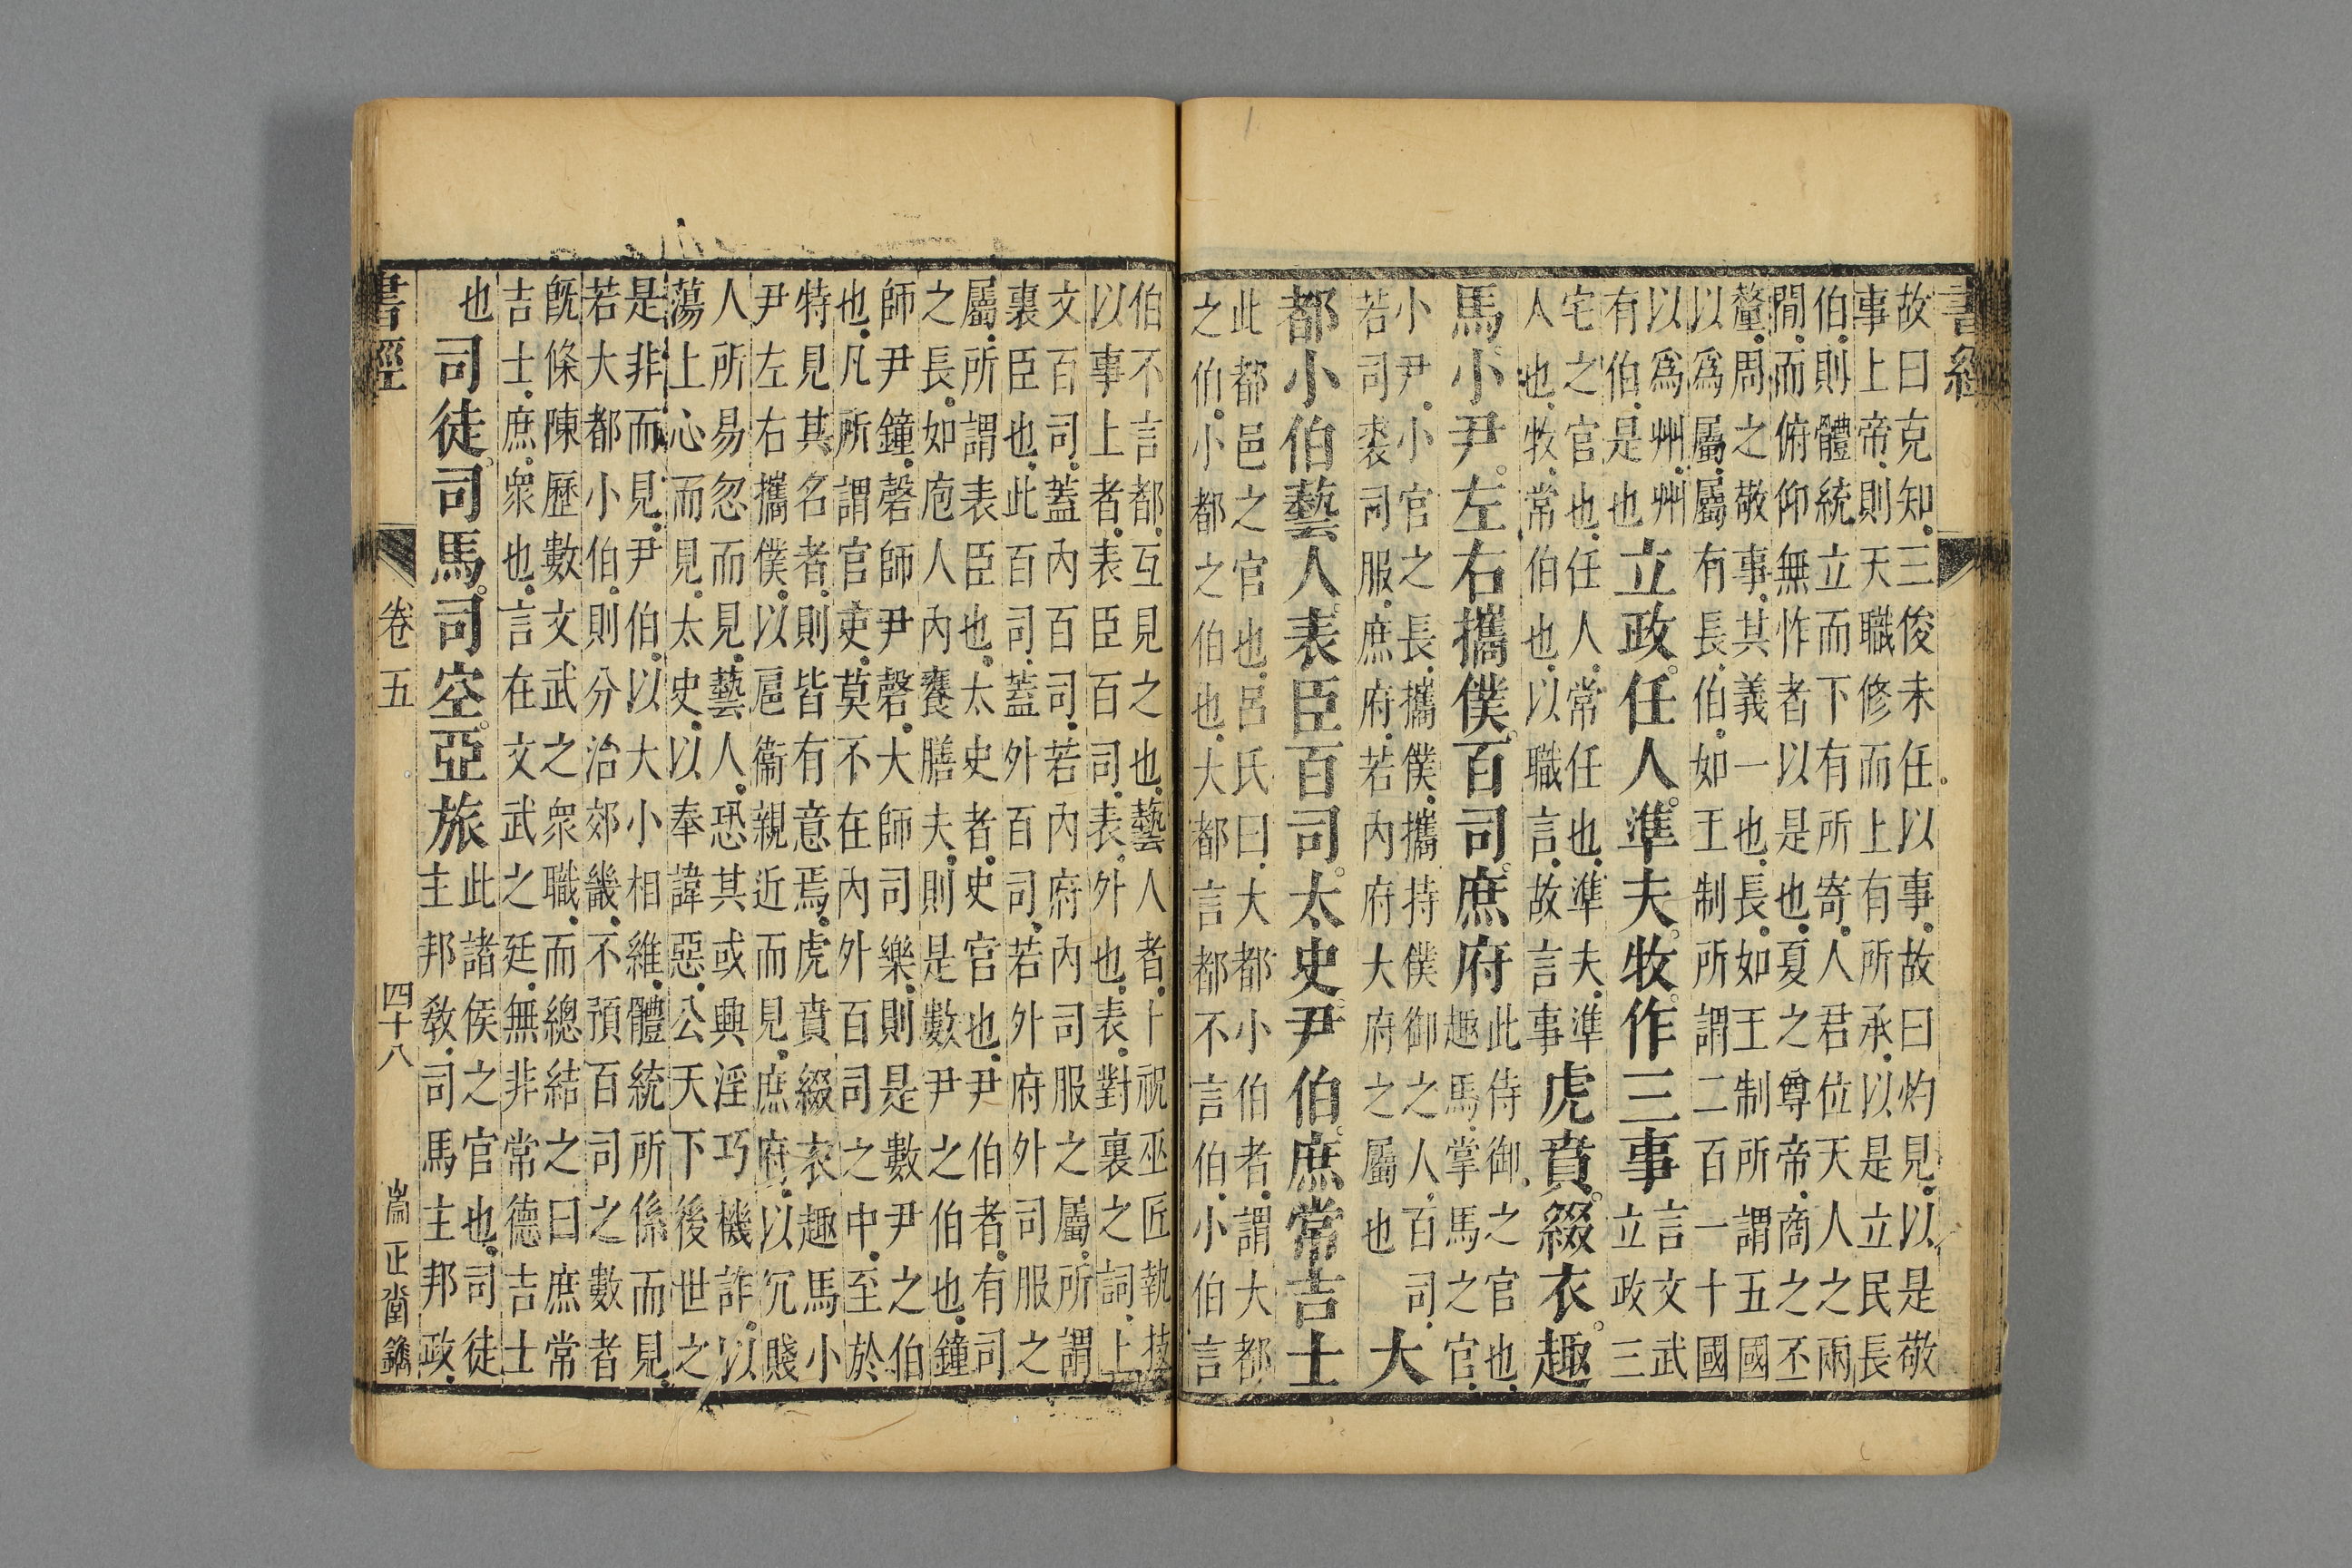 書經
故曰克知三俊未任以事故曰灼見以是敬
事上帝則天職修而上有所承以是立民長
伯則體統立而下有所寄人君位天人之兩
間而俯仰無怍者以是也夏之尊帝商之丕
釐周之敬事其義一也長如王制所謂五國
以爲屬屬有長伯如王制所謂二百一十國
以爲州州
有伯是也
立政。任人。準夫。牧。作三事
言文武
立政三
宅之官也任人常任也準夫準
人也牧常伯也以職言故言事
虎賁。綴衣。趣
馬小尹。左右攜僕。百司。庶府
此侍御之官也
趣馬掌馬之官
小尹小官之長攜僕攜持僕御之人百司
若司裘司服庶府若內府大府之屬也
大
都小伯藝人。表臣百司。太史。尹伯。庶常吉士
此都邑之官也呂氏曰大都小伯者謂大都
之伯小都之伯也大都言都不言伯小伯言
伯不言都互見之也藝人者卜祝巫匠執技
以事上者表臣百司表外也表對裏之詞上
文百司蓋內百司若內府內司服之屬所謂
裏臣也此百司蓋外百司若外府外司服之
屬所謂表臣也太史者史官也尹伯者有司
之長如庖人內饔膳夫則是數尹之伯也鐘
師尹鐘磬師尹磬大師司樂則是數尹之伯
也凡所謂官吏莫不在內外百司之中至於
特見其名者則皆有意焉虎賁綴衣趣馬小
尹左右攜僕以扈衞親近而見庶府以冗賤
人所易忽而見藝人恐其或興淫巧機詐以
蕩上心而見太史以奉諱惡公天下後世之
是非而見尹伯以大小相維體統所係而見
若大都小伯則分治郊畿不預百司之數者
旣條陳歷數文武之眾職而總結之曰庶常
吉士庶眾也言在文武之廷無非常德吉士
也
司徒。司馬。司空。亞旅
此諸侯之官也司徒
主邦敎司馬主邦政
書經 卷五 四十八 崙正堂鐫